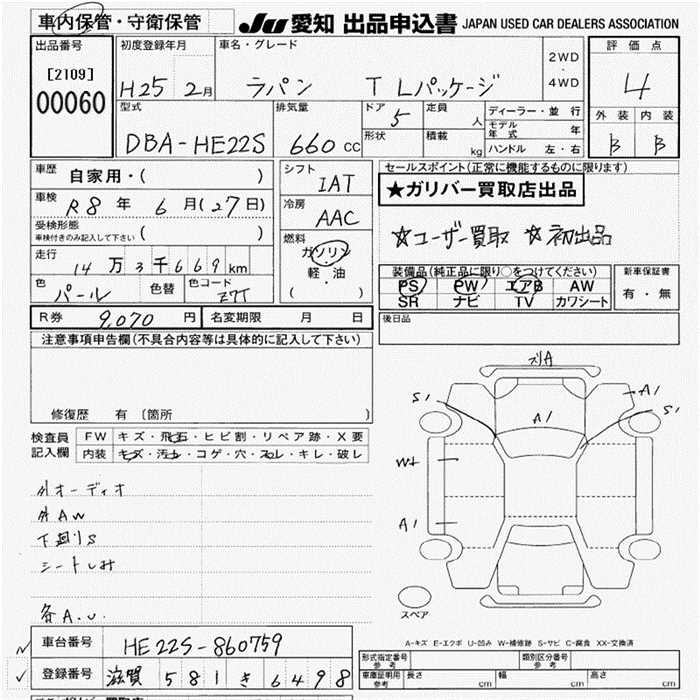 車内保管・守衛保管 JU 愛知 出品申込書 JAPAN USED CAR DEALERS ASSOCIATION
出品番号 初度登録年月 車名・グレード 2WD ・ 4WD 評価点
[2109] 00060 H25 2月 ラパン TLパッケージ 4
型式 排気量 ドア 5 定員 人 ディーラー・並行 外装 内装
DBA-HE22S 660cc 形状 積載 kg モデル年式 年 B B
ハンドル 左・右
車歴 自家用・( ) シフト IAT セールスポイント(正常に機能するものに限ります)
車検 R8年 6月(27日) 冷房 AAC ★ガリバー買取店出品
受検形態 車検付きのみ記入して下さい ( ) 燃料 ☆ユーザー買取 ☆初出品
走行 14万3千669km ガソリン
軽・油
( )
装備品(純正品に限り○をつけてください) 新車保証書
色 パール 色替 色コード Z7T PS PW エアB AW 有・無
SR ナビ TV カワシート
R券 9,070円 名変期限 月 日 後日品
注意事項申告欄(不具合内容等は具体的に記入して下さい)
修復歴 有 [箇所 ]
検査員記入欄 FW キズ・飛石・ヒビ割・リペア跡・X要
内装 キズ・汚れ・コゲ・穴・スレ・キレ・破レ
外オーディオ
外AW
下廻りS
シートしみ
各A.U.
スリA
S1
A1
A1
S1
W+
A1
スペア
A-キズ E-エクボ U-凹み W-補修跡 S-サビ C-腐食 XX-交換済
車台番号 HE22S-860759
登録番号 滋賀 581 き 6498
形式指定番号 参考 類別区分番号 参考
車庫証明用 参考 長さ cm 幅 cm 高さ cm